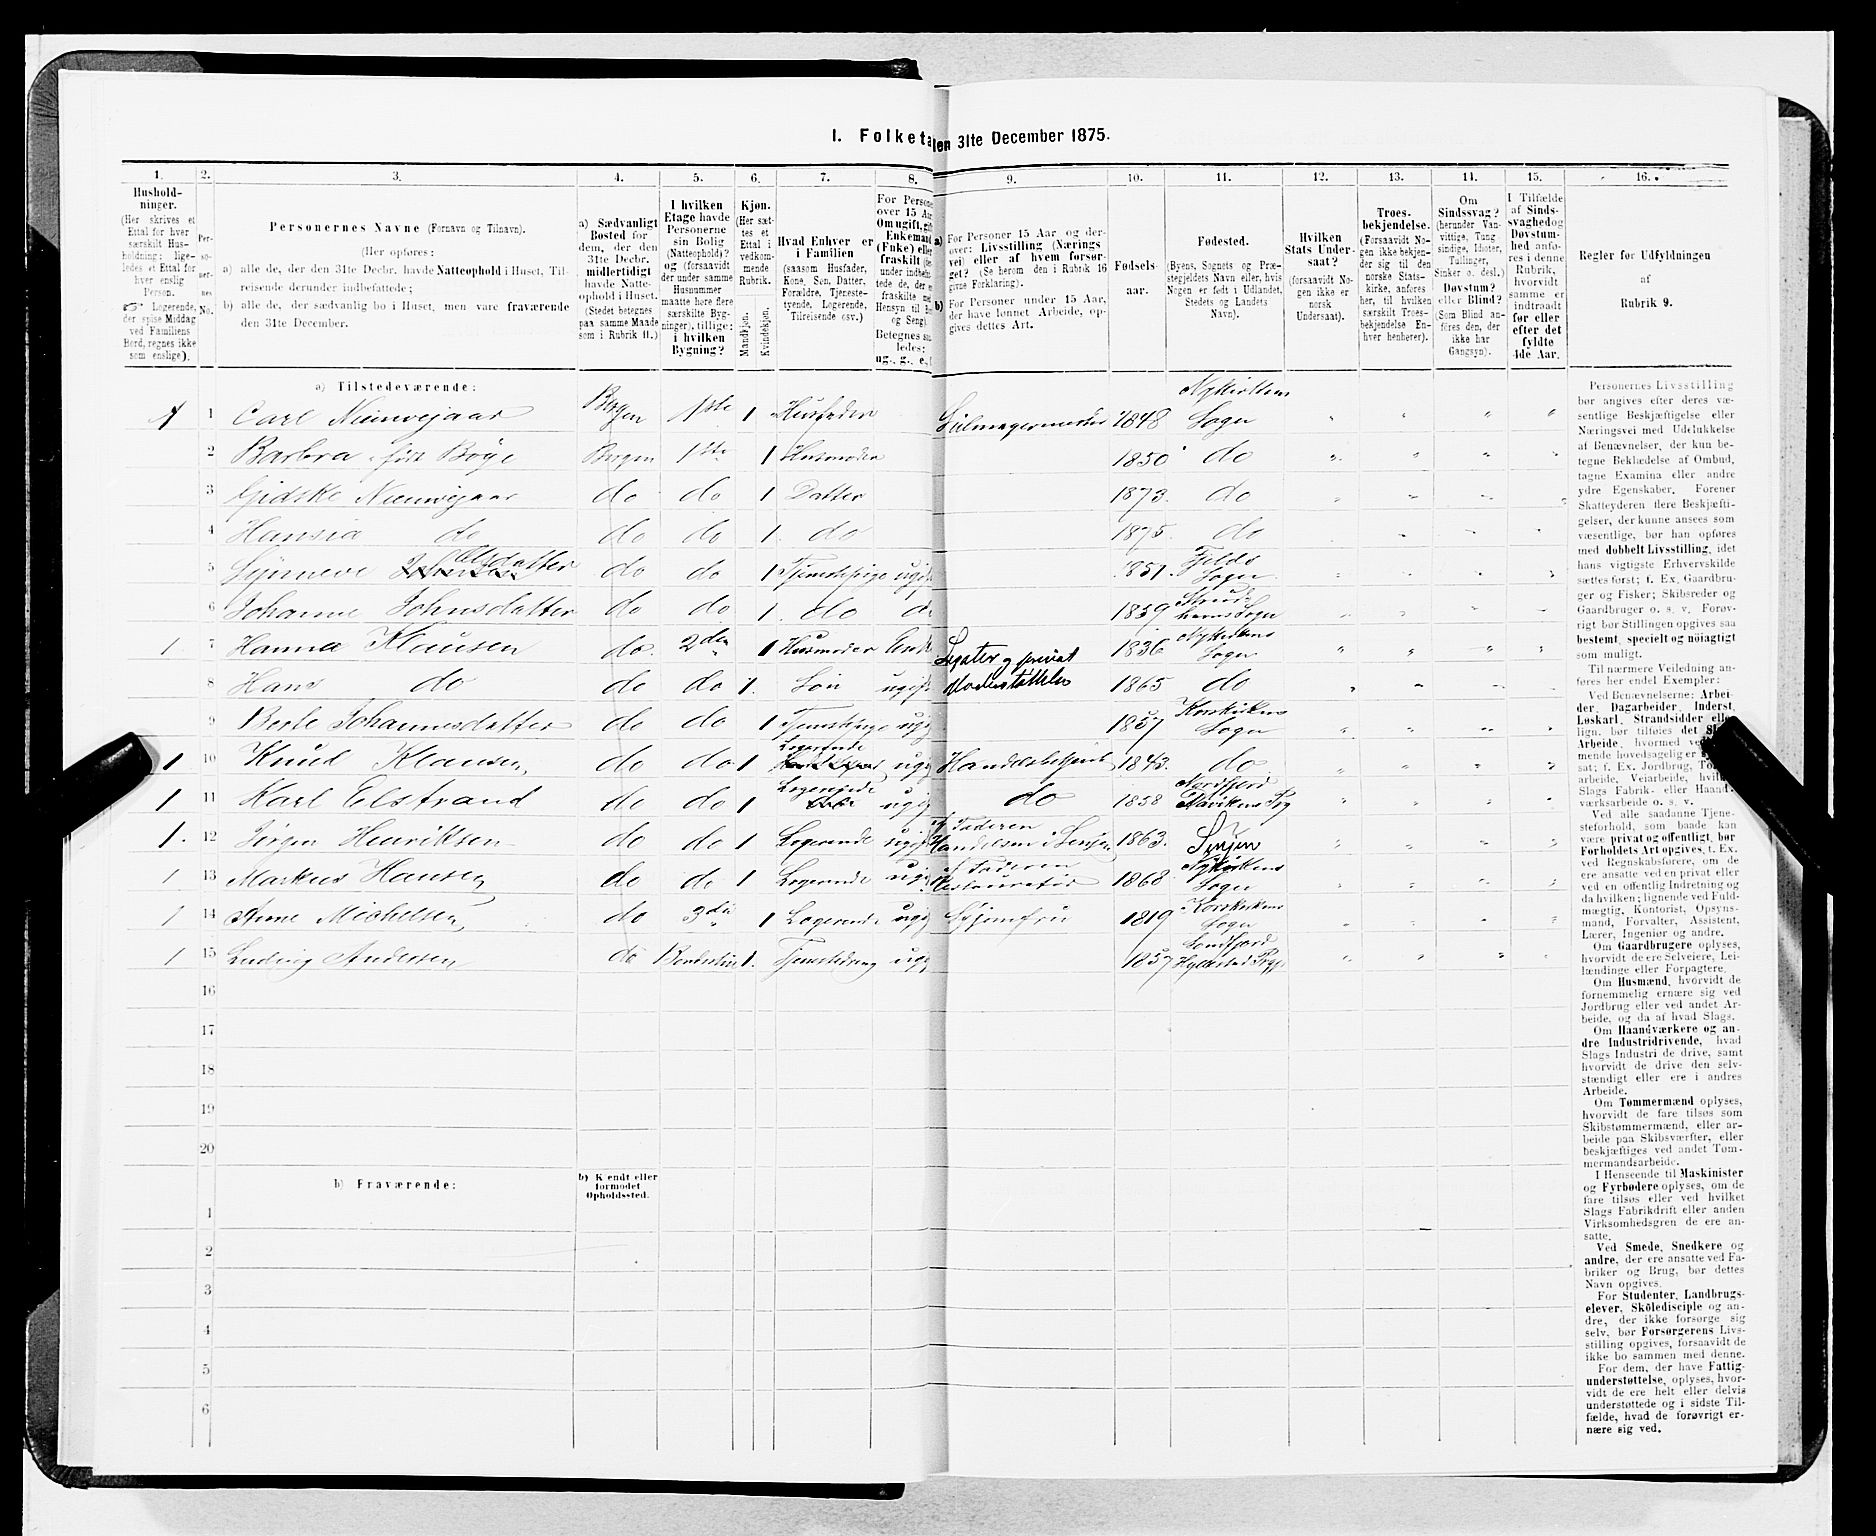 I. Folketa
len 31te December 1875.
1. 2. 3. 4. 5. 6. 7. 8. 9. 10. 11. 12. 13. 14. 15. 16.
Hushold-
ninger.
(Her skrives et
Ettal for hver
særskilt Hus-
holdning; lige-
ledes et Ettal for
hver enslig
Person.
☞ Logerende,
der spise Middag
ved Familiens
Bord, regnes ikke
som enslige).
Per-
so-
ner-
nes
No.
Personernes Navne (Fornavn og Tilnavn).
(Her opføres:
a) alle de, der den 31te Decbr. havde Natteophold i Huset, Til-
reisende derunder indbefattede;
b) alle de, der sædvanlig bo i Huset, men vare fraværende
den 31te December.
a) Sædvanligt
Bosted for
dem, der den
31te Decbr.
midlertidigt
havde Natte-
ophold i Huset.
(Stedet betegnes
paa samme Maade
som i Rubrik 11.)
I hvilken
Etage havde
Personerne
sin Bolig
(Natteophold)?
og (forsaavidt
der under samme
Husnummer
maatte høre flere
særskilte Byg-
ninger), tillige:
i hvilken
Bygning?
Kjøn.
(Her sæt-
tes et
Ettal i
vedkom-
mende
Rubrik.
Mandkjøn.
Kvindekjøn.
Hvad Enhver er
i Familien
(saasom Husfader,
Kone, Søn, Datter,
Forældre, Tjeneste-
tyende, Logerende,
Tilreisende osv.)
For Persone
over 15 Aar
Om ugift, gift
Enkemand
(Enke) elle
fraskilt (he
under indbefat-
tede de, der e
fraskilte med
Hensyn til Bo
og Seng).
Betegnes saa
ledes:
ug., g., e., f
a) For Personer 15 Aar og der-
over: Livsstilling (Nærings
vei) eller af hvem forsør-
get? (Se herom den i Rubrik 16
givne Forklaring).
b) For Personer under 15 Aar,
der have lønnet Arbeide, op-
gives dettes Art.
Fødsels-
aar.
Fødested.
(Byens, Sognets og Præ-
stegjeldets Navn eller, hvis
Nogen er født i Udlandet,
Stedets og Landets
Navn).
Hvilken
Stats Under-
saat?
(forsaavidt No-
gen ikke er
norsk
Undersaat).
Troes-
bekjendelse.
(Forsaavidt No-
gen ikke bekjen-
der sig til den
norske Stats-
kirke, anføres
her, til hvilken
særskilt Troes-
bekjendelse En-
hver henhører).
Om
Sindssvag?
(herunder Van-
vittige, Tung
sindige, Idioter,
Tullinger,
Sinker o. desl.)
Døvstum?
eller Blind?
(Som Blind an-
føres den, der
ikke har
Gangsyn).
I Tilfælde
af Sinds-
svaghed og
Døvstum-
hed anfø-
res i denne
Rubrik,
hvorvidt
samme er
indtraadt
før eller
efter det
fyldte
4de Aar.
Regler for Udfyldningen
af
Rubrik 9.
a) Tilstedeværende:
1 1 Carl Nieuwejaar Bergen 1ste 1 Husfader Seilmagermester 1848 Nykirkens Sogn
2 Barbra født Böge Bergen 1ste 1 Husmoder 1850 do
3 Gidske Nieuwejaar do do 1 Datter 1873. do
4 Hansia do do do 1. do 1875. do
5 Synneve Olsdatter do do 1 Tjenestepige ugift 1851. Fjelds Sogn
6 Johanne Johnsdatter do do 1. do do 1859
7 1. Hanna Klausen do. 2den 1 Husmoder Enke Legater og privat 1836 Nykirkens Sogn
8 Hans do do do 1. Søn ugift 1865 do
9 Berte Johannesdatter do do 1 Tjenestepige ugi 1857 Korskirkens Sogn
1 10 Knud Klausen do do 1 Logerende ugi Handelsbetjent 1843. do
1 11 Karl Elstrand do do 1 Logerende ugi do 1858 Nordfjord
1. 12 Jørgen Henriksen do do 1 Logerende ugift af Faderen Handelsm. i Senjen 1863. Senjen
1 13 Markus Hansen do do 1 Logerende ug af Faderen Restauratør 1868 Nykirkens Sogn
1 14 Anne Michelsen do 3die 1 Logerende ugi Syjomfru 1819 Korskirkens Sogn
1 15 Ludvig Andersen do 1. Tjenestedreng ugi 1857 Søndfjord Hyllestad Prgj.
16
17
18
19
20
b) Fraværende:
b) Kjendt eller
formodet
Opholdssted.
1
2
3
4
5
6
Personernes Livsstilling
bør angives efter deres væ-
sentlige Beskjæftigelse eller
Næringsvei med Udelukkelse
af Benævnelser, der kun be-
tegne Beklædelse af Ombud,
tagne Examina eller andre
ydre Egenskaber. Forener
Skatteyderen flere Beskjæfti-
gelser, der kunne ansees som
væsentlige, bør han opføres
med dobbelt Livsstilling, idet
hans vigtigste Erhvervskilde
sættes først; f. Ex. Gaardbru-
ger og Fisker; Skibsreder og
Gaardbruger o. s. v. Forøv-
rigt bør Stillingen opgives saa
bestemt, specielt og nöiagtigt
som muligt.
Til nærmere Veiledning an-
føres her endel Exempler:
Ved Benævnelserne: Arbei-
der, Dagarbeider, Inderst,
Løskarl, Strandsidder eller
lign. bør tilføies det Slags
Arbeide, hvormed ved
mende hovedsagelig er
sat; f. Ex. Jordbrug, Tom
arbeide, Veiarbeide, hvil
Slags Fabrik- eller Haand-
værksarbeide o. s. v.
Ved alle saadanne Tjene-
steforhold, som baade kan
være privat og offentligt, bør
Forholdets Art opgives, t. Ex.
ved Regnskabsførere, om de
ere ansatte ved en privat eller
ved en offentlig Indretning og
da hvilken; lignende ved Fuld-
mægtig, Kontorist, Opsyns-
mand, Forvalter, Assistent,
Lærer, Ingeniør og andre.
Om Gaardbrugere oplyses,
hvorvidt de ere Selveiere, Lei-
lændinge eller Forpagtere.
Om Husmænd, hvorvidt de
fornemmelig ernære sig ved
Jordbrug eller ved andet Ar-
beide, og da af hvad Slags.
Om Haandværkere og an-
dre Industridrivende, hvad
Slags Industri de drive, samt
hvorvidt de drive den selv-
stændigt eller ere i andres
Arbeide.
Om Tømmermænd oplyses,
hvorvidt de fare tilsøs som
Skibstømmermænd, eller ar-
beide paa Skibsværfter, eller
beskjæftiges ved andet Tøm-
mermandsarbeide.
I Henseende til Maskinister
og Fyrbødere oplyses, om de
fare tilsøs eller ved hvilket
Slags Fabrikdrift eller anden
Virksomhedsgren de ere an-
satte.
Ved Smede, Snedkere og
andre, der ere ansatte ved Fa-
briker og Brug, bør dettes
Navn opgives.
For Studenter, Landbrugs-
elever, Skoledisciple og an-
dre, der ikke forsørge sig
selv, bør Forsørgerens Livs-
stilling opgives, forsaavidt de
ikke bo sammen med denne.
For dem, der have Fattig-
understøttelse, oplyses, hvor-
vidt de ere helt eller delvis
understøttede og i sidste Til-
fælde, hvad de forøvrigt er-
nære sig ved.